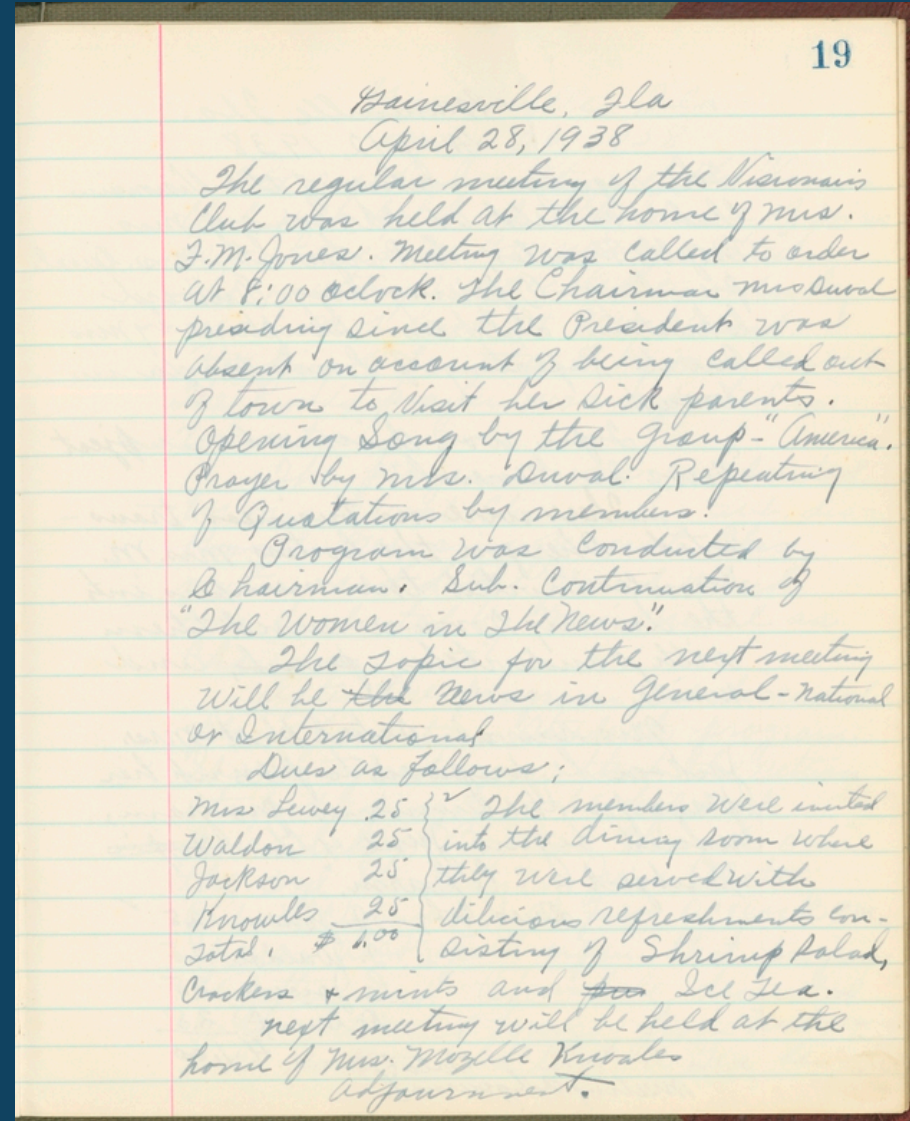 19
Gainesville, Fla
April 28, 1938
The regular meeting of the Visionairs
Club was held at the home of Mrs.
F.M. Jones. Meeting was called to order
at 8:00 oclock. The Chairman Mrs Duval
presiding since the President was
absent on account of being called out
of town to visit her sick parents.
Opening Song by the group - "America".
Prayer by Mrs. Duval. Repeating
of Quatations by members.
Program was conducted by
Chairman. Sub. Continuation of
"The Women in The News".
The topic for the next meeting
will be the News in General - National
or International
Dues as follows:
Mrs Lewey .25
Waldon 25
Jackson 25
Knowles 25
Total. $ 1.00
The members were invited
into the dining room where
they were served with
dilicious refreshments con-
sisting of Shrimp Salad,
Crackers + mints and Ice Tea.
next meeting will be held at the
home of Mrs. Mozelle Knowles
adjournment.